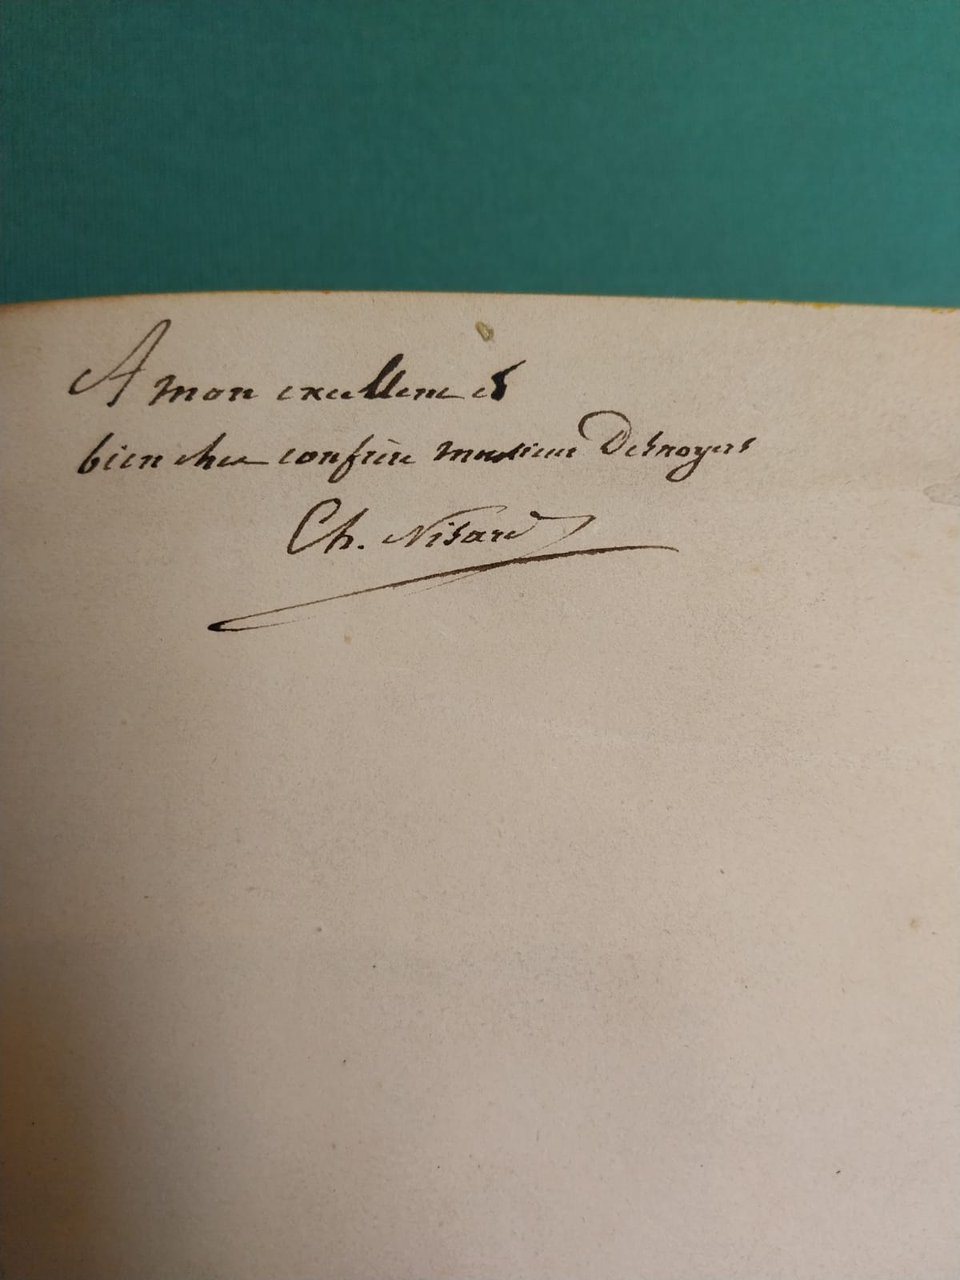 A mon excellent et
bien cher confrère monsieur Desnoyers
Ch. Nisard